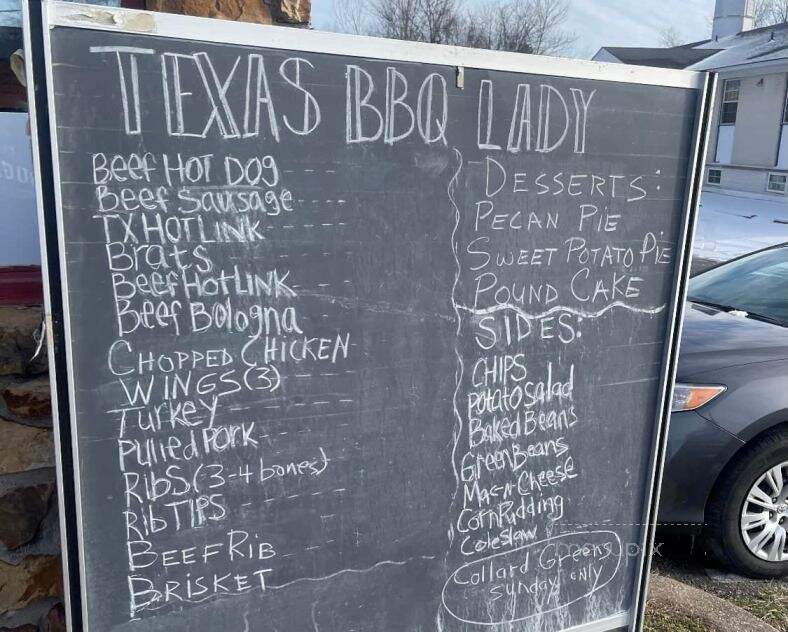 TEXAS BBQ LADY
Beef HOT DOg
Beef Sausage
TX HOT LINK
Brats
Beef HotLINK
Beef Bologna
CHOPPED CHICKEN
WINGS (3)
Turkey
Pulled Pork
RibS (3-4 bones)
Rib TIPS
BEEF RIB
BRISKET
DESSERTS:
PECAN PIE
SWEET POTATO PIE
POUND CAKE
SIDES:
CHIPS
Potato Salad
Baked Beans
Green Beans
Mac-N-Cheese
Corn Pudding
Coleslaw
Collard Greens
Sunday only